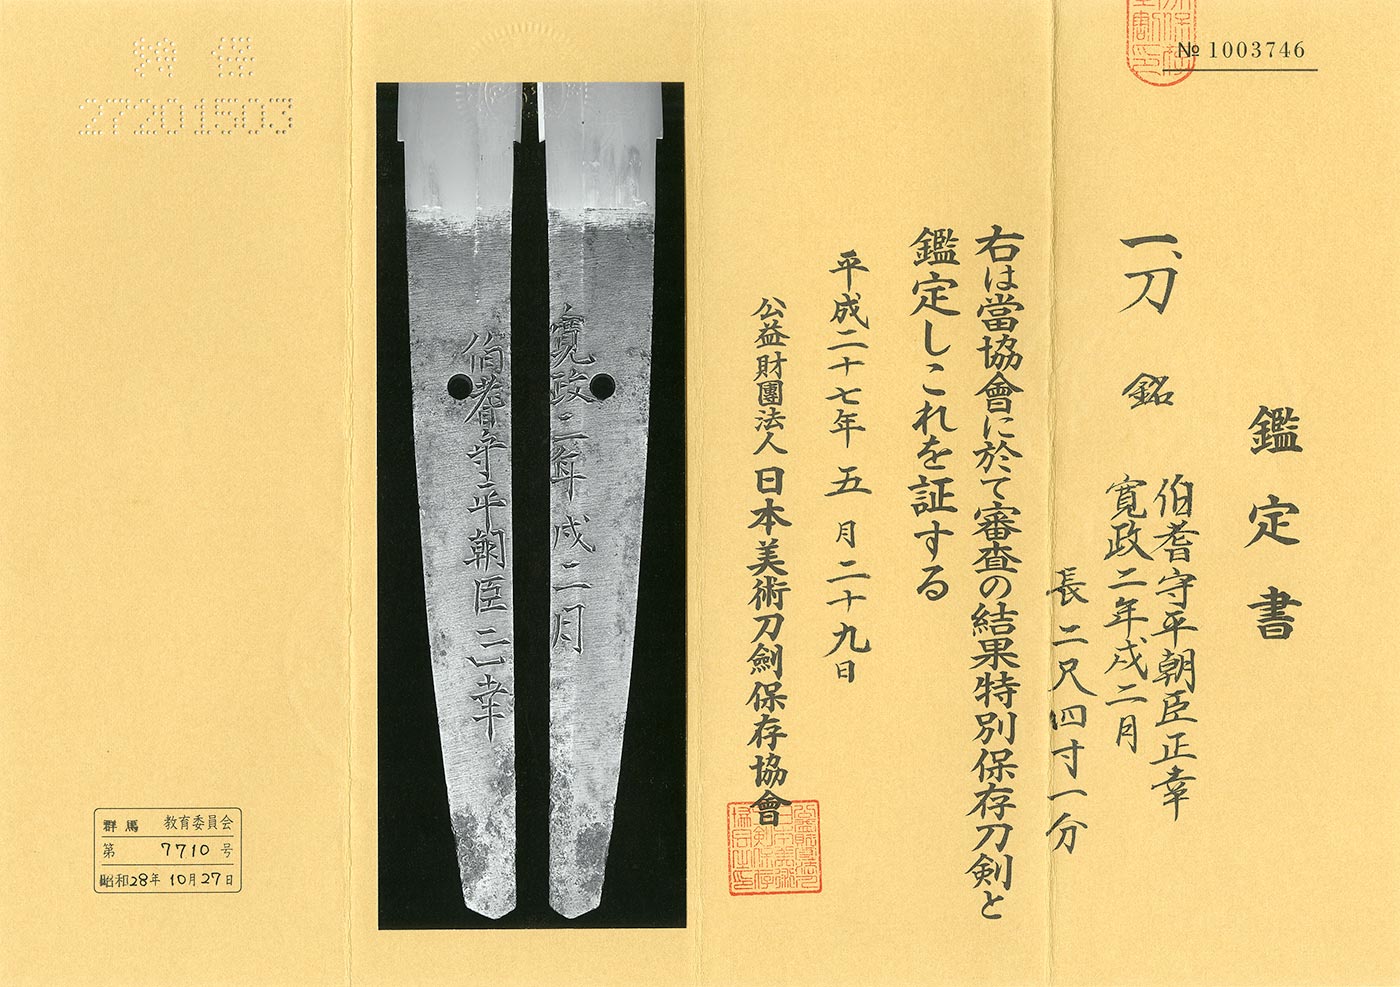 № 1003746
鑑定書
一、刀 銘 伯耆守平朝臣正幸
寛政二年戌二月
長二尺四寸一分
右は當協會に於て審査の結果特別保存刀剣と
鑑定しこれを証する
平成二十七年五月二十九日
公益財團法人日本美術刀劍保存協會
寛政二年戌二月
伯耆守平朝臣正幸
特保
27201503
群馬 教育委員会
第 7710 号
昭和28年 10月27日